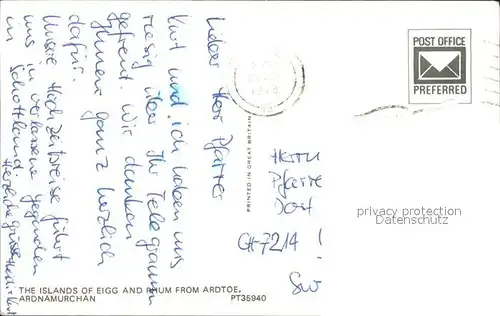 Lieber Herr Pfarrer
Kurt und ich haben uns
riesig über Ihr Telegramm
gefreut. Wir danken
Ihnen ganz herzlich
dafür.
Unsere Hochzeitsreise führt
uns in verlassene Gegenden
in Schottland.
Herzliche Grüsse
POST OFFICE
PREFERRED
PRINTED IN GREAT BRITAIN
Herrn
Pfarre
Dost
CH-7214 !
privacy protection
Datenschutz
THE ISLANDS OF EIGG AND RHUM FROM ARDTOE,
ARDNAMURCHAN
PT35940